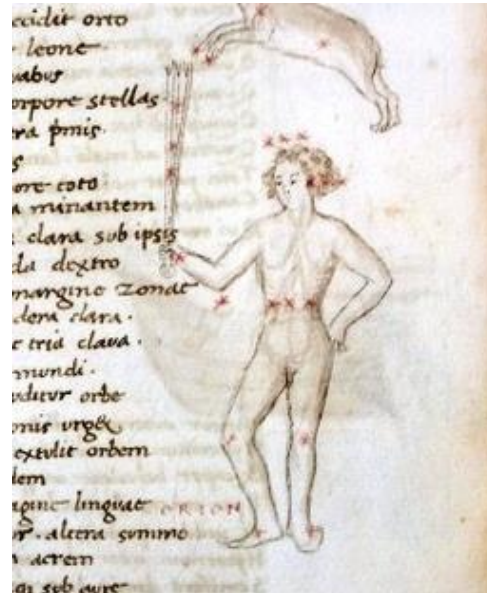 ecidit orto
leone
uabus
orpore stellas.
era pmis.
s
ore toto
a minantem
clara sub ipsis
da dextro
margine zonae
dera clara.
tria claua.
mundi.
uditur orbe
onis urget
extulit orbem
dem
agine linguae
ORION
ur. altera summo
acrem
sub aure